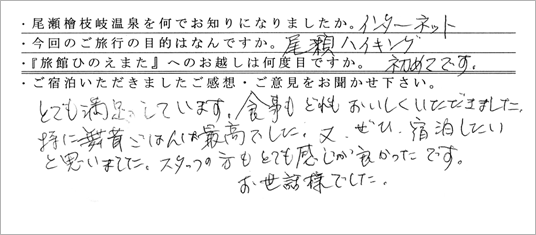 ・尾瀬檜枝岐温泉を何でお知りになりましたか。インターネット
・今回のご旅行の目的はなんですか。尾瀬ハイキング
・『旅館ひのえまた』へのお越しは何度目ですか。初めてです。
・ご宿泊いただきましたご感想・ご意見をお聞かせ下さい。
とても満足しています。食事もどれもおいしくいただきました。
特に舞茸ごはんは最高でした。又、ぜひ、宿泊したい
と思いました。スタッフの方もとても感じが良かったです。
お世話様でした。